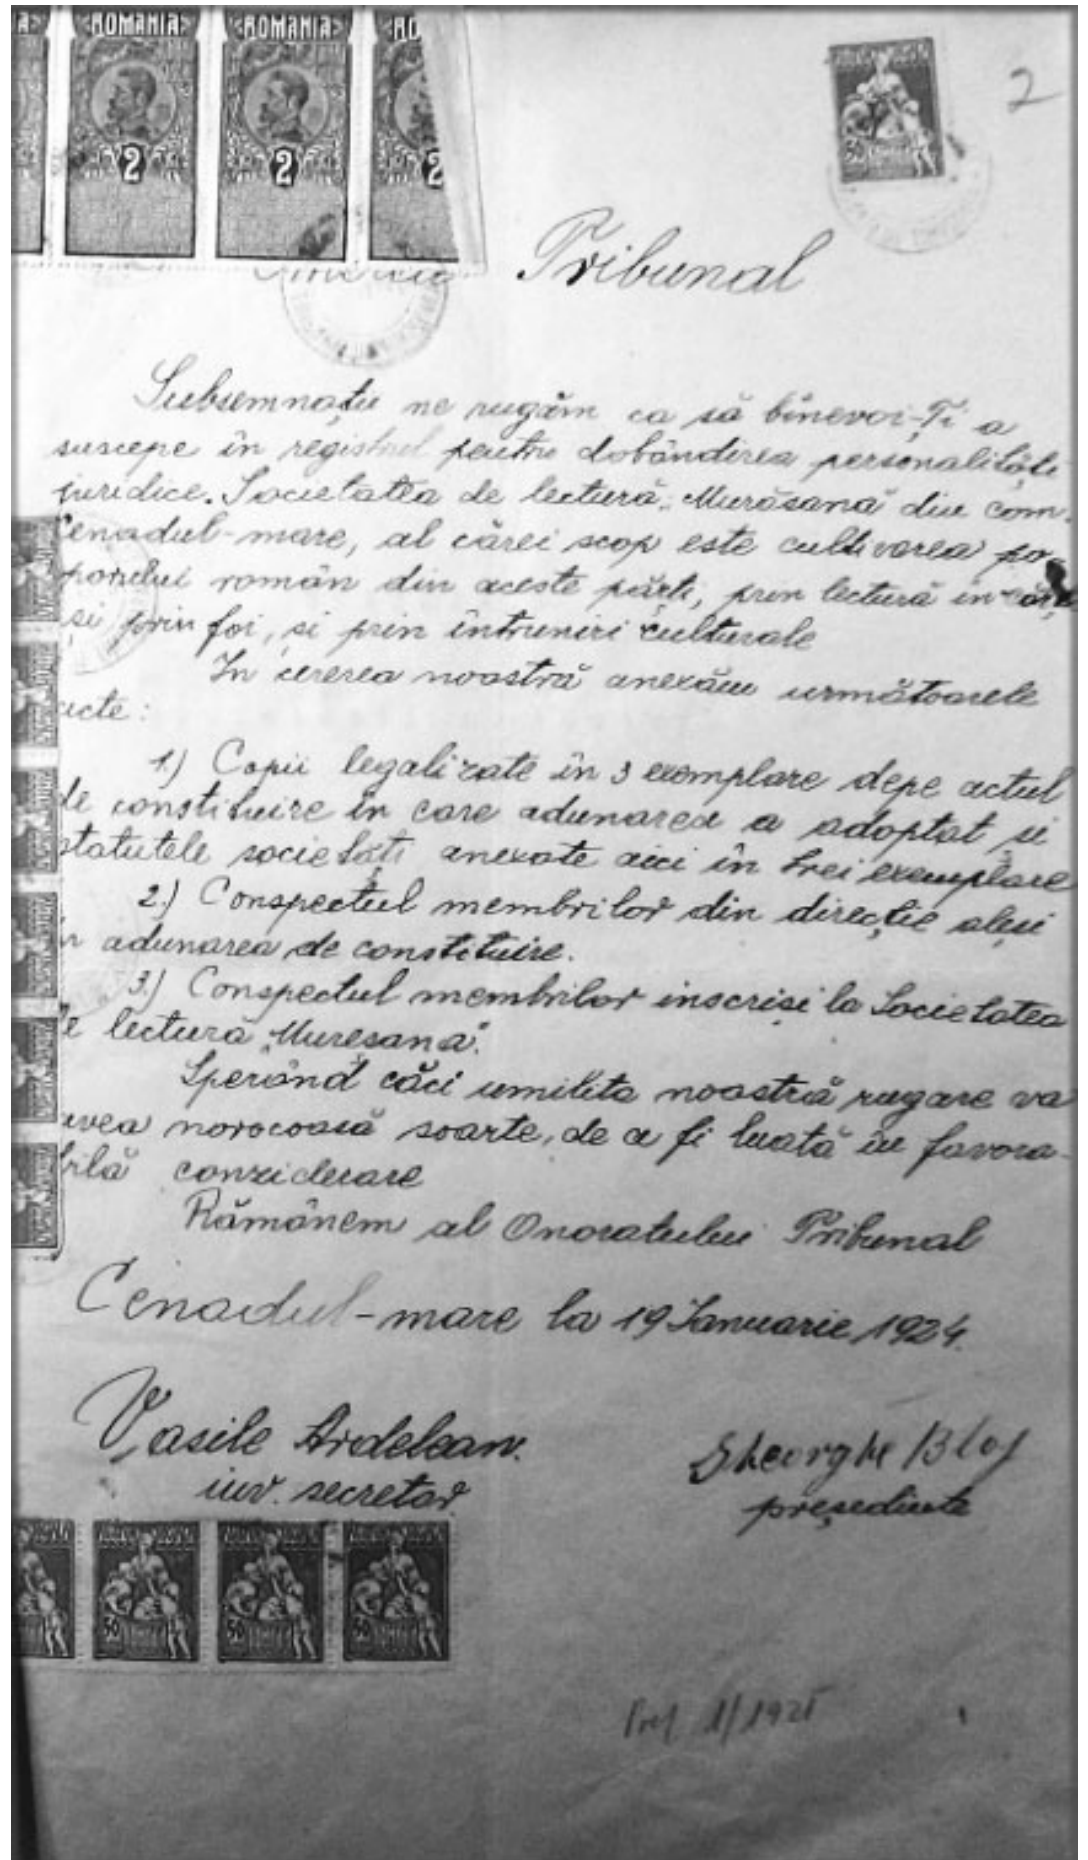 ROMANIA
ROMANIA
RO
2
2
2
2
Tribunal
Subsemnații ne rugăm ca să binevoi-Ți a
suscepe în registrul pentru dobândirea personalități
juridice. Societatea de lectură „Murăsană" din com.
Cenadul-mare, al cărei scop este cultivarea po-
porului român din aceste părți, prin lectură în
și prin foi, și prin întruniri culturale
In cererea noastră anexăm următoarele
acte:
1.) Copii legalizate în 3 exemplare depe actul
de constituire în care adunarea a adoptat și
statutele societăți anexate aici în trei exemplare
2.) Conspectul membrilor din direcție aleși
în adunarea de constituire.
3.) Conspectul membrilor inscriși la Societatea
de lectură „Muresana".
Sperând căci umilita noastră rugare va
avea norocoasă soarte, de a fi luată în favora-
bilă conziderare
Rămânem al Onoratului Tribunal
Cenadul-mare la 19 Ianuarie 1924.
Vasile Ardelean.
inv. secretar
Gheorghe Bloj
președinte
50
50
50